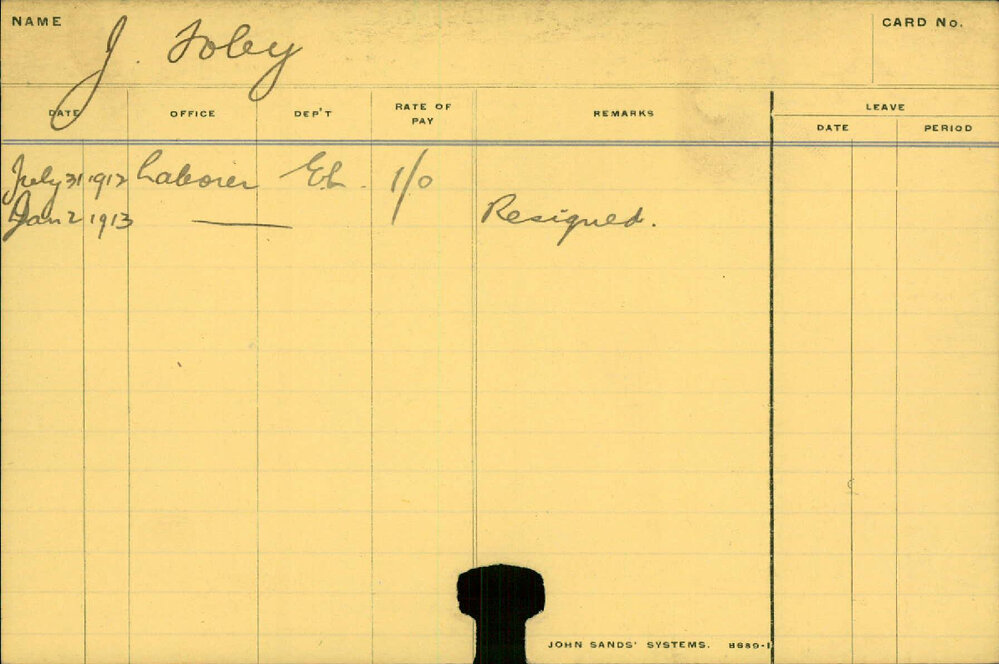 NAME J. Foley CARD No.
DATE OFFICE DEP'T RATE OF PAY REMARKS LEAVE
DATE PERIOD
July 31 1912 Laborer EL. 1/0
Jan 2 1913 — Resigned.
JOHN SANDS' SYSTEMS. 8689-1